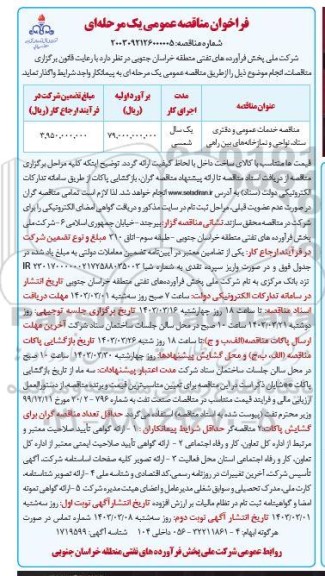 فراخوان مناقصه عمومی یک مرحله‌ای
شماره مناقصه: ۲۰۰۳۰۹۲۱۲۶۰۰۰۰۰۵
شرکت ملی پخش فرآورده های نفتی منطقه خراسان جنوبی در نظر دارد با رعایت قانون برگزاری
مناقصات، انجام موضوع ذیل را از طریق مناقصه عمومی یک مرحله ای به پیمانکار واجد شرایط واگذار نماید.
عنوان مناقصه
مدت اجرای کار
برآورد اولیه (ریال)
مبلغ تضمین شرکت در فرآیند ارجاع کار (ریال)
مناقصه خدمات عمومی و دفتری
ستاد، نواحی و نمازخانه‌های بین راهی
یک سال شمسی
۷۹,۰۰۰,۰۰۰,۰۰۰
۳,۹۵۰,۰۰۰,۰۰۰
قیمت ها متناسب با کالای ساخت داخل با لحاظ کیفیت ارائه گردد. توضیح اینکه کلیه مراحل برگزاری
مناقصه از دریافت اسناد مناقصه تا ارائه پیشنهاد مناقصه گران، بازگشایی پاکات از طریق سامانه تدارکات
الکترونیکی دولت (ستاد) به آدرس www.setadiran.ir انجام خواهد شد. لذا لازم است تمامی مناقصه گران
در صورت عدم عضویت قبلی، مراحل ثبت نام در سایت مذکور و دریافت گواهی امضای الکترونیکی را برای
شرکت در مناقصه محقق سازند. نشانی مناقصه گزار: بیرجند - خیابان جمهوری اسلامی ۶ - شرکت ملی
پخش فرآورده های نفتی منطقه خراسان جنوبی - طبقه سوم - اتاق ۳۱۰ مبلغ و نوع تضمین شرکت
در فرآیند ارجاع کار: یکی از تضامین معتبر در آیین‌نامه تضمین معاملات دولتی به مبلغ یاد شده در
جدول فوق و در صورت واریز سپرده نقدی به شماره شبا
نزد بانک مرکزی به نام شرکت ملی پخش فرآورده‌های نفتی منطقه خراسان جنوبی تاریخ انتشار
در سامانه تدارکات الکترونیکی دولت: ساعت ۷ صبح روز سه‌شنبه ۱۴۰۳/۰۳/۰۱ مهلت دریافت
اسناد مناقصه: تا ساعت ۱۸ روز چهارشنبه ۱۴۰۳/۰۳/۱۶ تاریخ برگزاری جلسه توجیهی: روز
دوشنبه ۱۴۰۳/۰۳/۲۱ ساعت ۱۰ صبح در محل سالن جلسات ساختمان ستاد شرکت آخرین مهلت
ارسال پاکات مناقصه (الف، ب و ج): تا ساعت ۱۸ روز شنبه ۱۴۰۳/۰۳/۲۶ تاریخ بازگشایی پاکات
مناقصه (الف، ب، ج) و محل گشایش پیشنهادها: روز چهارشنبه ۱۴۰۳/۰۳/۳۰ ساعت ۱۰ صبح
در محل سالن جلسات ساختمان ستاد شرکت مدت اعتبار پیشنهادات: سه ماه از تاریخ بازگشایی
پاکات شایان ذکر است در این مناقصه برای تعیین مناسب‌ترین قیمت و برنده مناقصه از دستورالعمل
ارزیابی مالی و فرایند قیمت متناسب در مناقصات صنعت نفت به شماره ۷۹۶ - ۲۰/۲ مورخ ۹۹/۱۲/۲۱
وزیر محترم نفت (پیوست شده به اسناد مناقصه) استفاده می گردد. حداقل تعداد مناقصه گران برای
گشایش پاکات: ۲ مناقصه گر حداقل شرایط پیمانکاران ۱ - ارائه گواهی تأیید صلاحیت معتبر و
مرتبط از اداره کل تعاون، کار و رفاه اجتماعی ۲ - ارائه گواهی تأیید صلاحیت ایمنی معتبر از اداره کل
تعاون، کار و رفاه اجتماعی استان محل فعالیت ۳ - ارائه تصویر کلیه صفحات اساسنامه شرکت، آگهی
تأسیس شرکت، آخرین تغییرات در روزنامه رسمی، کد اقتصادی و شناسه ملی ۴ - ارائه تصویر شناسنامه،
کارت ملی، مدرک تحصیلی و سوابق شغلی مدیرعامل و اعضای هیئت مدیره شرکت ۵ - ارائه گواهی نمونه
امضا و گواهینامه ثبت نام در نظام مالیات بر ارزش افزوده تاریخ انتشار آگهی نوبت اول: روز سه‌شنبه
۱۴۰۳/۰۳/۰۱ تاریخ انتشار آگهی نوبت دوم: روز سه‌شنبه ۱۴۰۳/۰۳/۰۸ شماره تماس در صورت
هرگونه ابهام: ۴ - ۳۲۲۱۱۸۶۱ - ۰۵۶ داخلی ۱۰۴ شناسه آگهی: ۱۷۱۹۵۹۹
روابط عمومی شرکت ملی پخش فرآورده های نفتی منطقه خراسان جنوبی